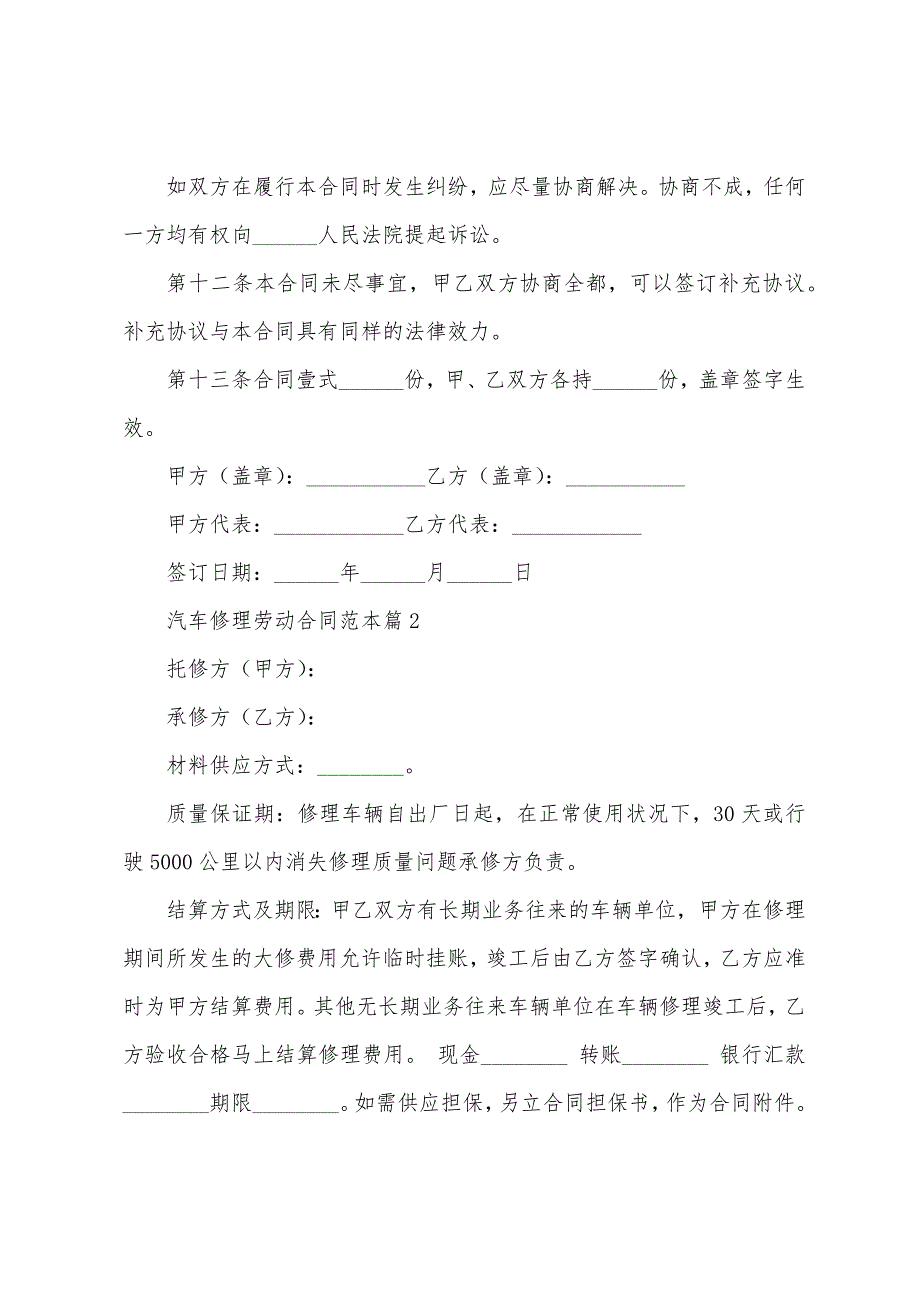 如双方在履行本合同时发生纠纷，应尽量协商解决。协商不成，任何
一方均有权向______人民法院提起诉讼。
第十二条本合同未尽事宜，甲乙双方协商全都，可以签订补充协议。
补充协议与本合同具有同样的法律效力。
第十三条合同壹式______份，甲、乙双方各持______份，盖章签字生
效。
甲方（盖章）：___________乙方（盖章）：___________
甲方代表：____________乙方代表：____________
签订日期：______年______月______日
汽车修理劳动合同范本篇2
托修方（甲方）：
承修方（乙方）：
材料供应方式：________。
质量保证期：修理车辆自出厂日起，在正常使用状况下，30天或行
驶5000公里以内消失修理质量问题承修方负责。
结算方式及期限：甲乙双方有长期业务往来的车辆单位，甲方在修理
期间所发生的大修费用允许临时挂账，竣工后由乙方签字确认，乙方应准
时为甲方结算费用。其他无长期业务往来车辆单位在车辆修理竣工后，乙
方验收合格马上结算修理费用。 现金________ 转账________ 银行汇款
________期限________。如需供应担保，另立合同担保书，作为合同附件。